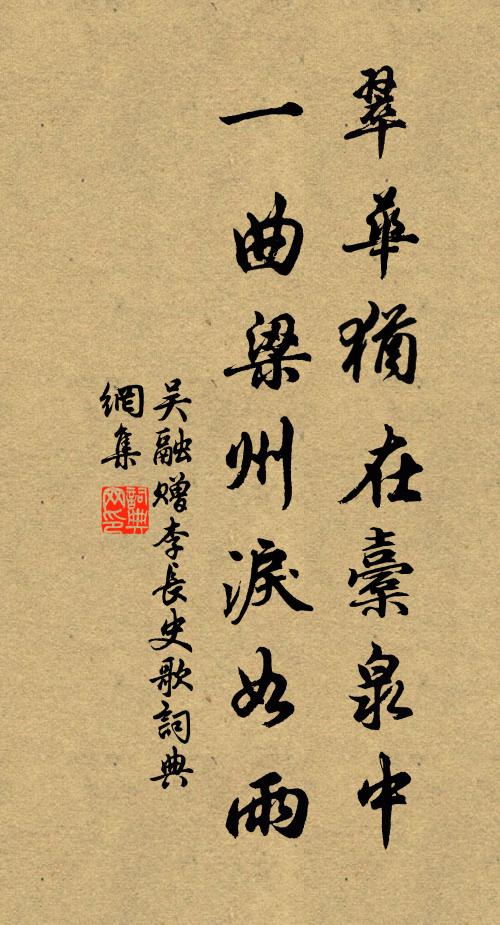 翠華猶在橐泉中
一曲梁州淚如雨
吴融贈李長史歌詞典
網集
詞典
网印